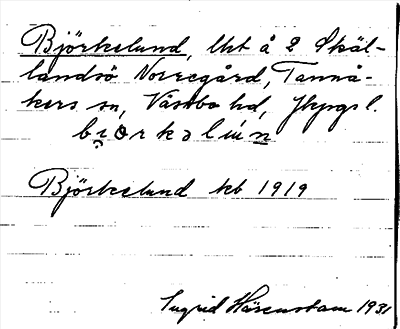 Björkelund, lht å 2 Skäl-
landsö Norregård, Tannå-
kers sn, Västbo hd, Jkpgs l.
Björkelund kb 1919
Ingrid Härenstam 1931